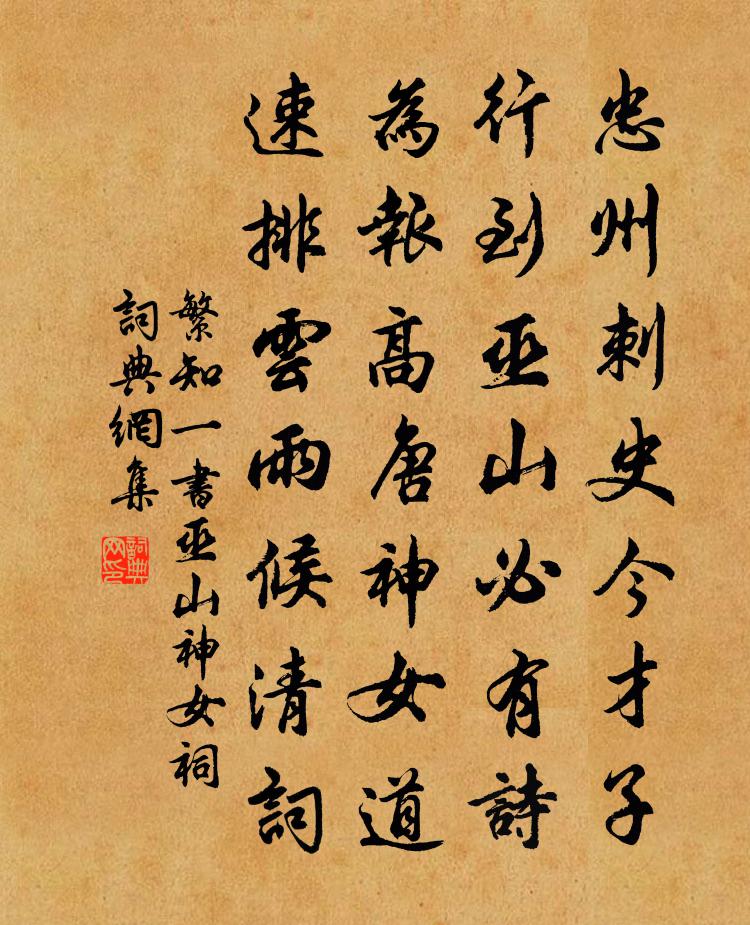 忠州刺史今才子
行到巫山必有詩
為報高唐神女道
速排雲雨候清詞
繁知一書巫山神女祠
詞典網集
詞典網印